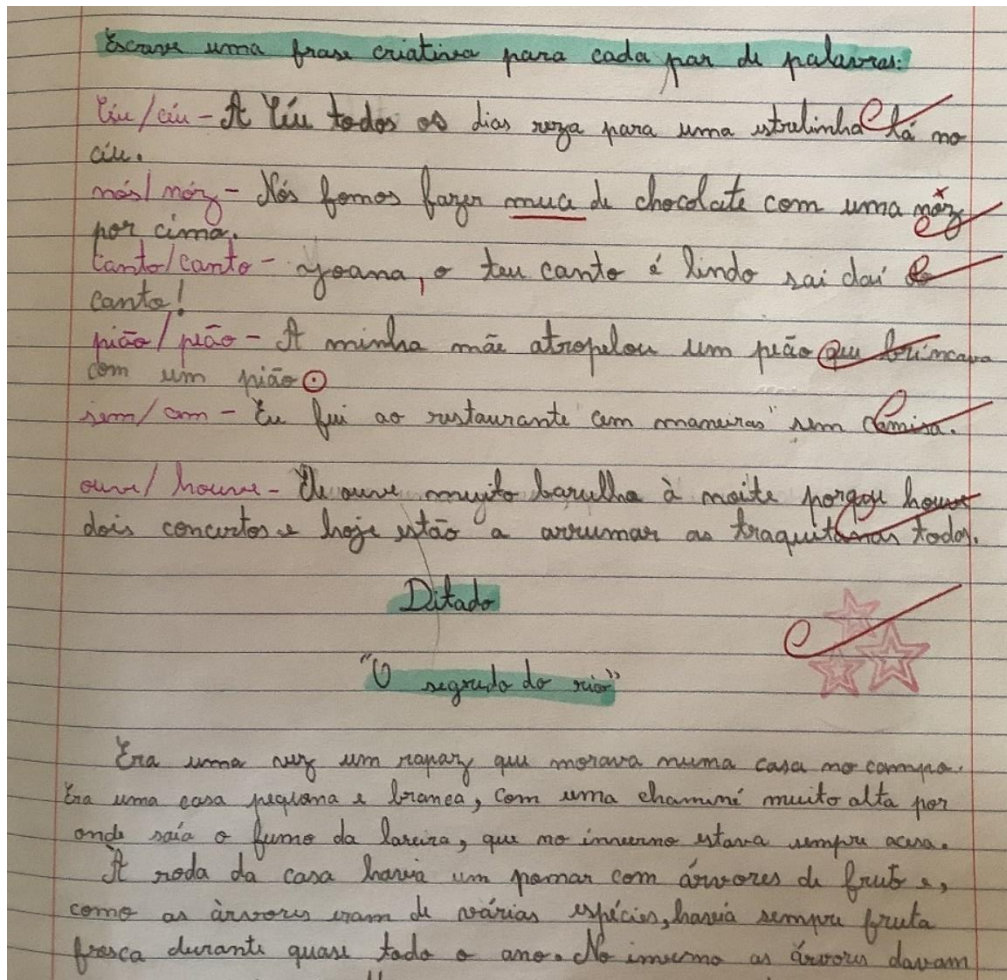 Escreve uma frase criativa para cada par de palavras:
Céu/céu - A Céu todos os dias reza para uma estrelinha lá no
céu.
nós/nóz - Nós fomos fazer muce de chocolate com uma nóz
por cima.
canto/canto - Joana, o teu canto é lindo sai daí do
canto!
pião/peão - A minha mãe atropelou um peão que brincava
com um pião.
sem/cem - Eu fui ao restaurante "cem maneiras" sem camisa.
ouve/houve - Ele ouve muyto barulho à noite porque houve
dois concertos e hoje estão a arrumar as traquitanas todas.
Ditado
"O segredo do rio"
Era uma vez um rapaz que morava numa casa no campo.
Era uma casa pequena e branca, com uma chaminé muito alta por
onde saía o fumo da lareira, que no inverno estava sempre acesa.
À roda da casa havia um pomar com árvores de fruto e,
como as àrvores eram de várias espécies, havia sempre fruta
fresca durante quase todo o ano. No inverno as árvores davam